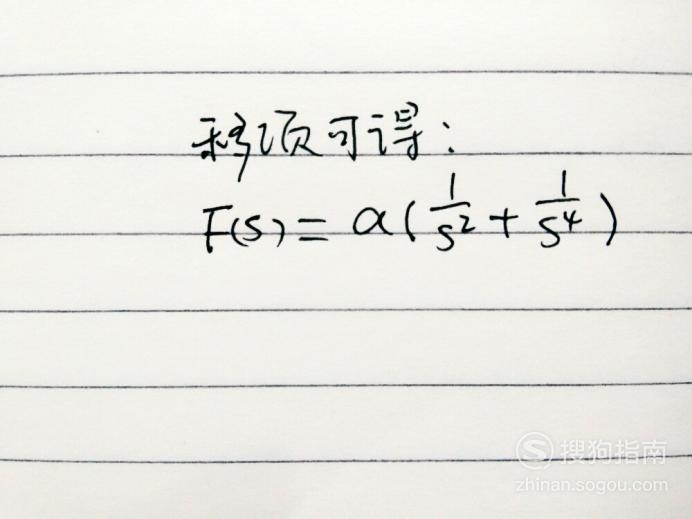 移项可得：
F(s) = a( 1/s² + 1/s⁴ )
S 搜狗指南
zhinan.sogou.com